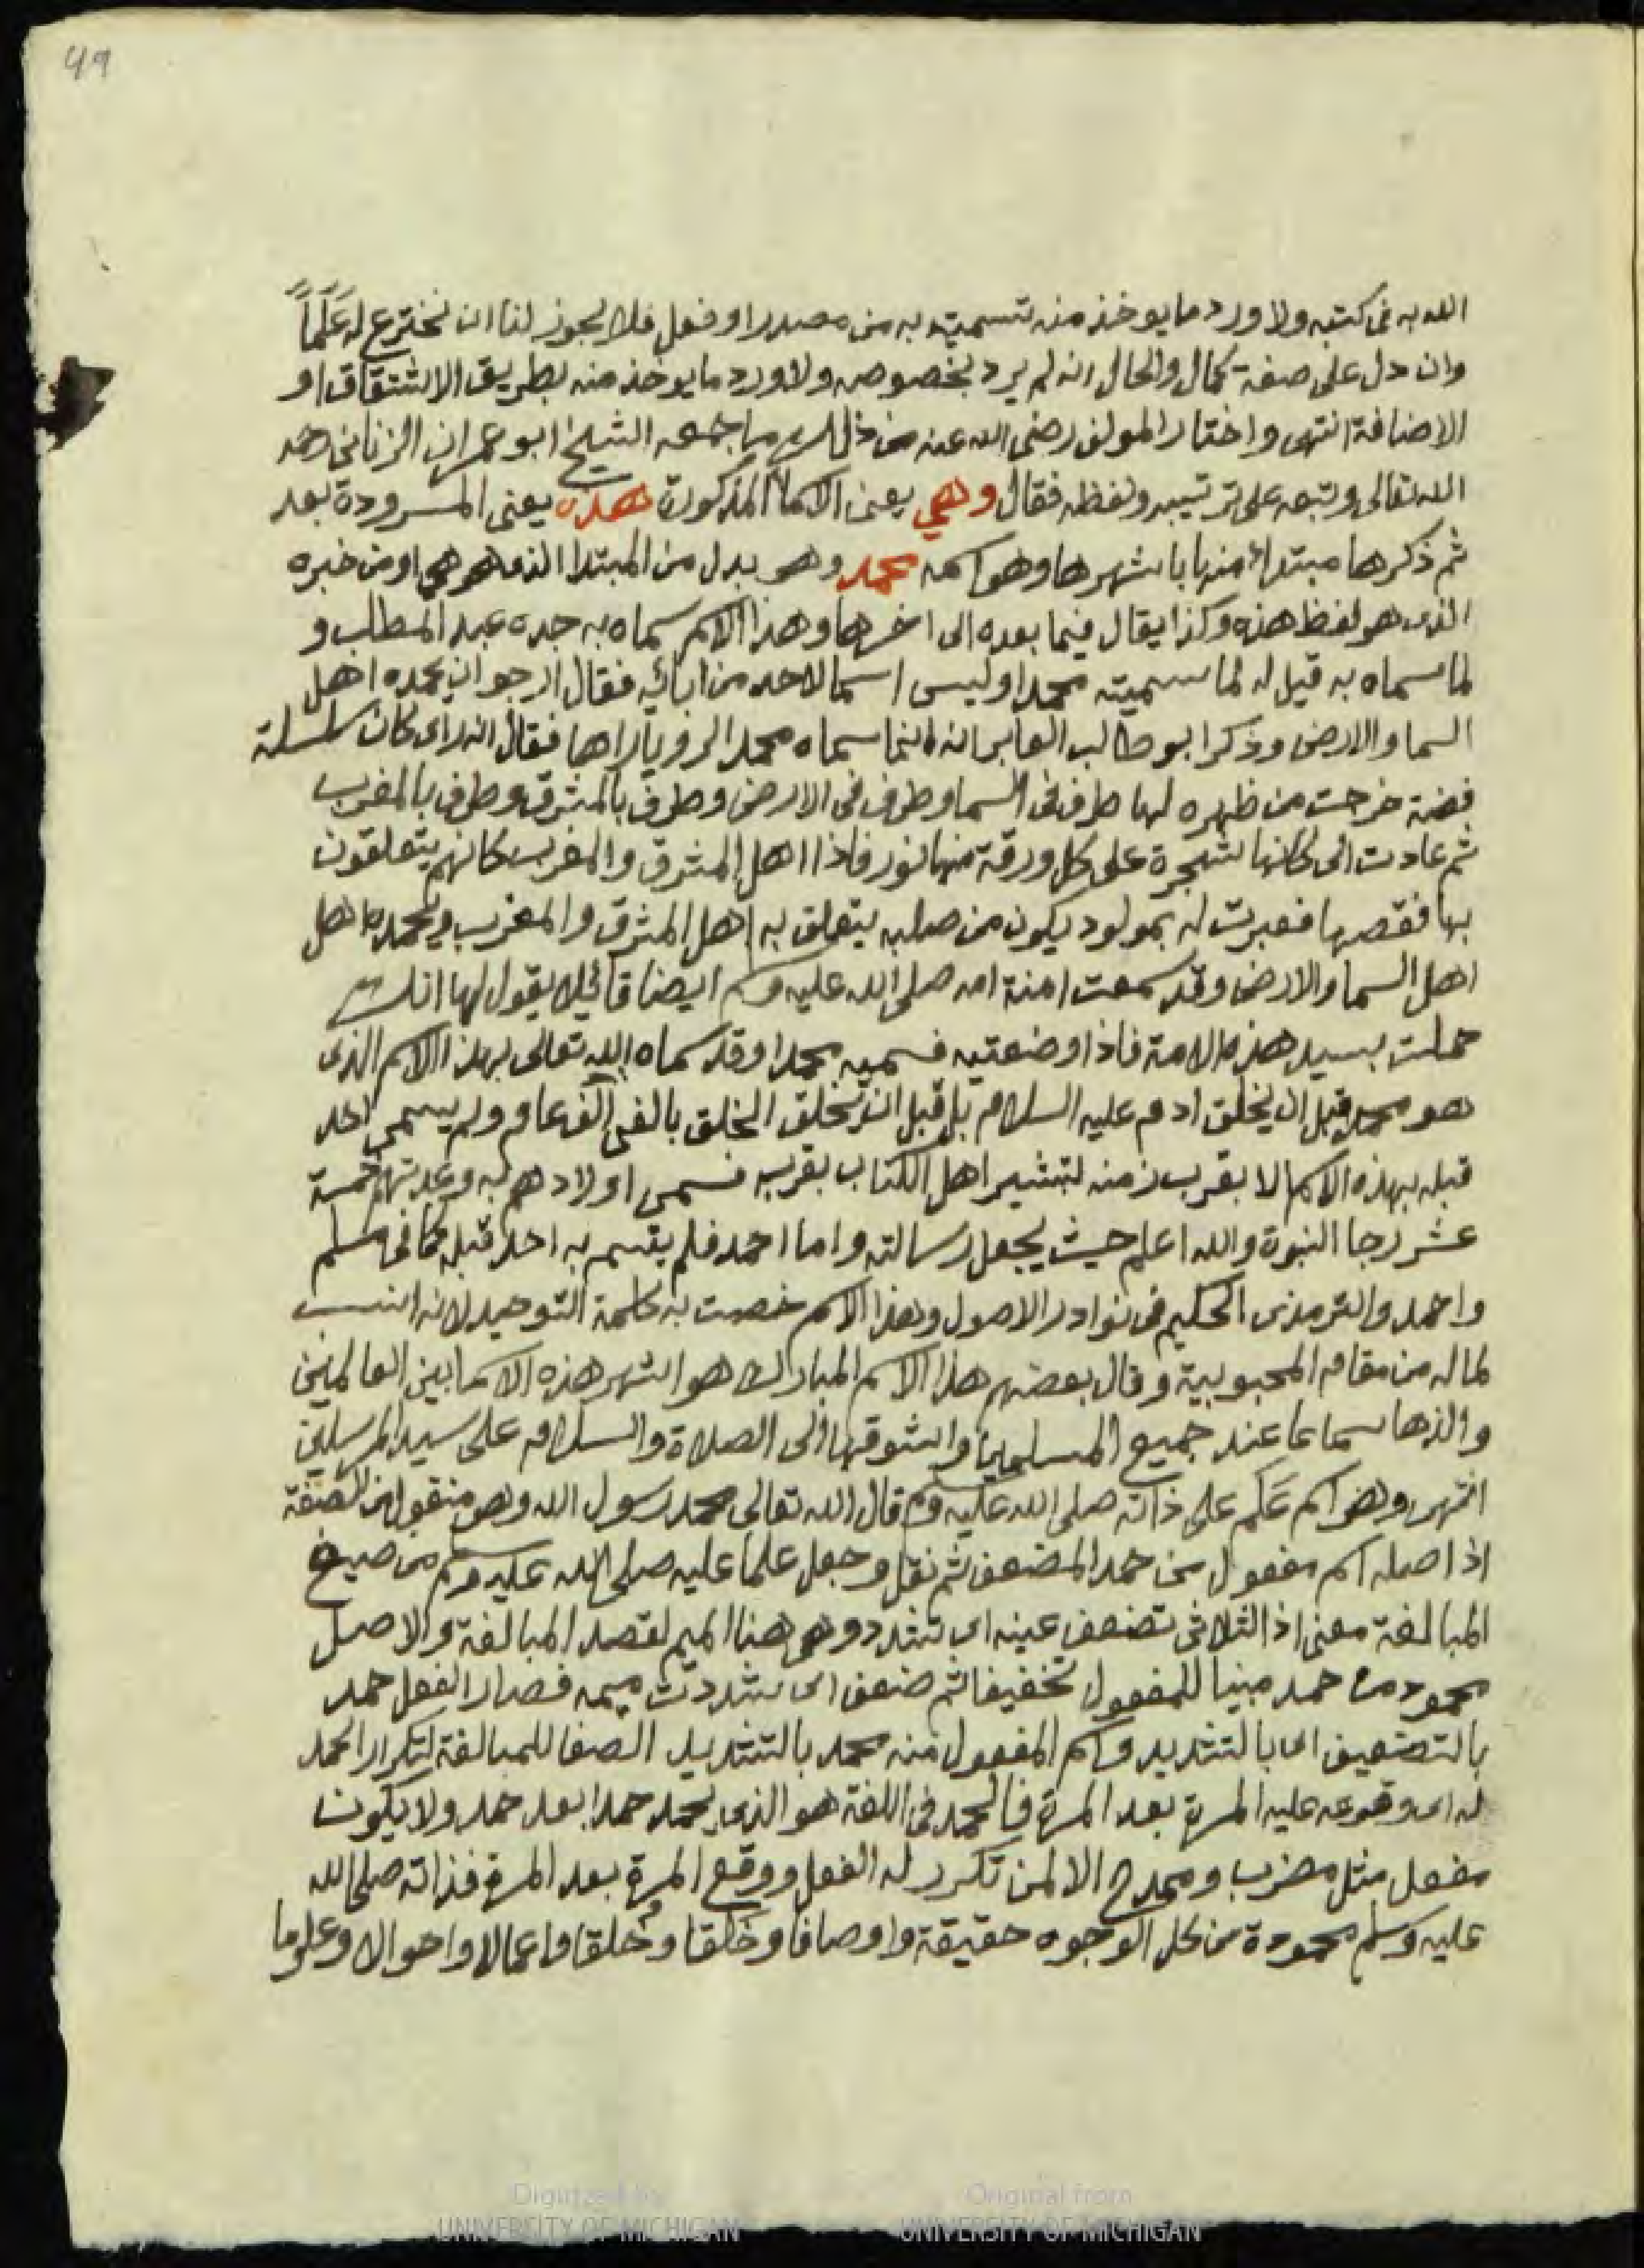 49
الله به فى كتبه ولا ورد ما يوخذ منه تسميته به من مصدر او فعل فلا يجوز لنا ان نخترع له عَلَماً
وان دل على صفة كمال والحال انه لم يرد بخصوصه ولا ورد ما يوخذ منه بطريق الاشتقاق او
الاضافة انتهى واختار المولف رضى الله عنه من ذلك ما جمعه الشيخ ابو عمران الزناتى رحمه
الله تعالى وتبعه على ترتيبه ولفظه فقال وهي يعنى الاسما المذكورة هذه يعنى المسرودة بعد
ثم ذكرها مبتدئا منها باشهرها وهو اسمه محمد وهو بدل من المبتدا الذى هو هى او من خبره
الذى هو لفظ هذه وكذا يقال فيما بعده الى اخرها وهذا الاسم سماه به جده عبد المطلب و
لما سماه به قيل له لما سميته محمدا وليس اسما لاحد من ابائه فقال ارجو ان يحمده اهل
السما والارض وذكر ابو طالب العابر انه انما سماه محمدا لرويا راها فقال انه راى كان سلسلة
فضة خرجت من ظهره لها طرف فى السما وطرف فى الارض وطرف بالمشرق وطرف بالمغرب
ثم عادت الى كانها شجرة على كل ورقة منها نور فاذا اهل المشرق والمغرب كانهم يتعلقون
بها فقصها فعبرت له بمولود يكون من صلبه يتعلق به اهل المشرق والمغرب ويحمده اهل
اهل السما والارض وقد سمعت امنة امه صلى الله عليه وسلم ايضا قائلا يقول لها انك
حملت بسيد هذه الامة فاذا وضعتيه فسميه محمدا وقد سماه الله تعالى بهذا الاسم الذى
هو محمد قبل ان يخلق ادم عليه السلام بل قبل ان يخلق الخلق بالفى الف عام ولم يسمى احد
قبله بهذه الاسم الا بقرب زمنه لتبشير اهل الكتاب بقربه فسمى اولادهم به وعدتهم خمسة
عشر رجا النبوة والله اعلم حيث يجعل رسالته واما احمد فلم يتسم به احد قبله كما فى مسلم
واحمد والترمذى الحكيم فى نوادر الاصول وهذا الاسم خصت به كلمة التوحيد لانه انسب
لما له من مقام المحبوبية وقال بعضهم هذا الاسم المبارك هو اشهر هذه الاسما بين العالمين
والذها سماعا عند جميع المسلمين واشوقها الى الصلاة والسلام على سيد المرسلين
انتهى وهو اسم عَلَم على ذاته صلى الله عليه وسلم قال الله تعالى محمد رسول الله وهو منقول من الصفة
اذ اصله اسم مفعول من حمد المضعف ثم نقل وجعل علما عليه صلى الله عليه وسلم من صيغ
المبالغة معنى اذ الثلاثى تضعف عينه اى تشدد وهى هنا الميم لقصد المبالغة والاصل
محمود من حمد مبنيا للمفعول تخفيفا ثم ضعف اى شددت ميمه فصار الفعل حمد
بالتضعيف اى بالتشديد واسم المفعول منه محمد بالتشديد ايضا للمبالغة لتكرار الحمد
له اى وقوعه عليه المرة بعد المرة فالمحمد فى اللغة هو الذى يحمد حمدا بعد حمد ولا يكون
مفعل مثل مضرب وممدح الا لمن تكرر له الفعل ووقع المرة بعد المرة فذاته صلى الله
عليه وسلم محمودة من كل الوجوه حقيقة واوصافا وخَلقا وخُلقا واعمالا واحوالا وعلوما
Digitized by
UNIVERSITY OF MICHIGAN
Original from
UNIVERSITY OF MICHIGAN